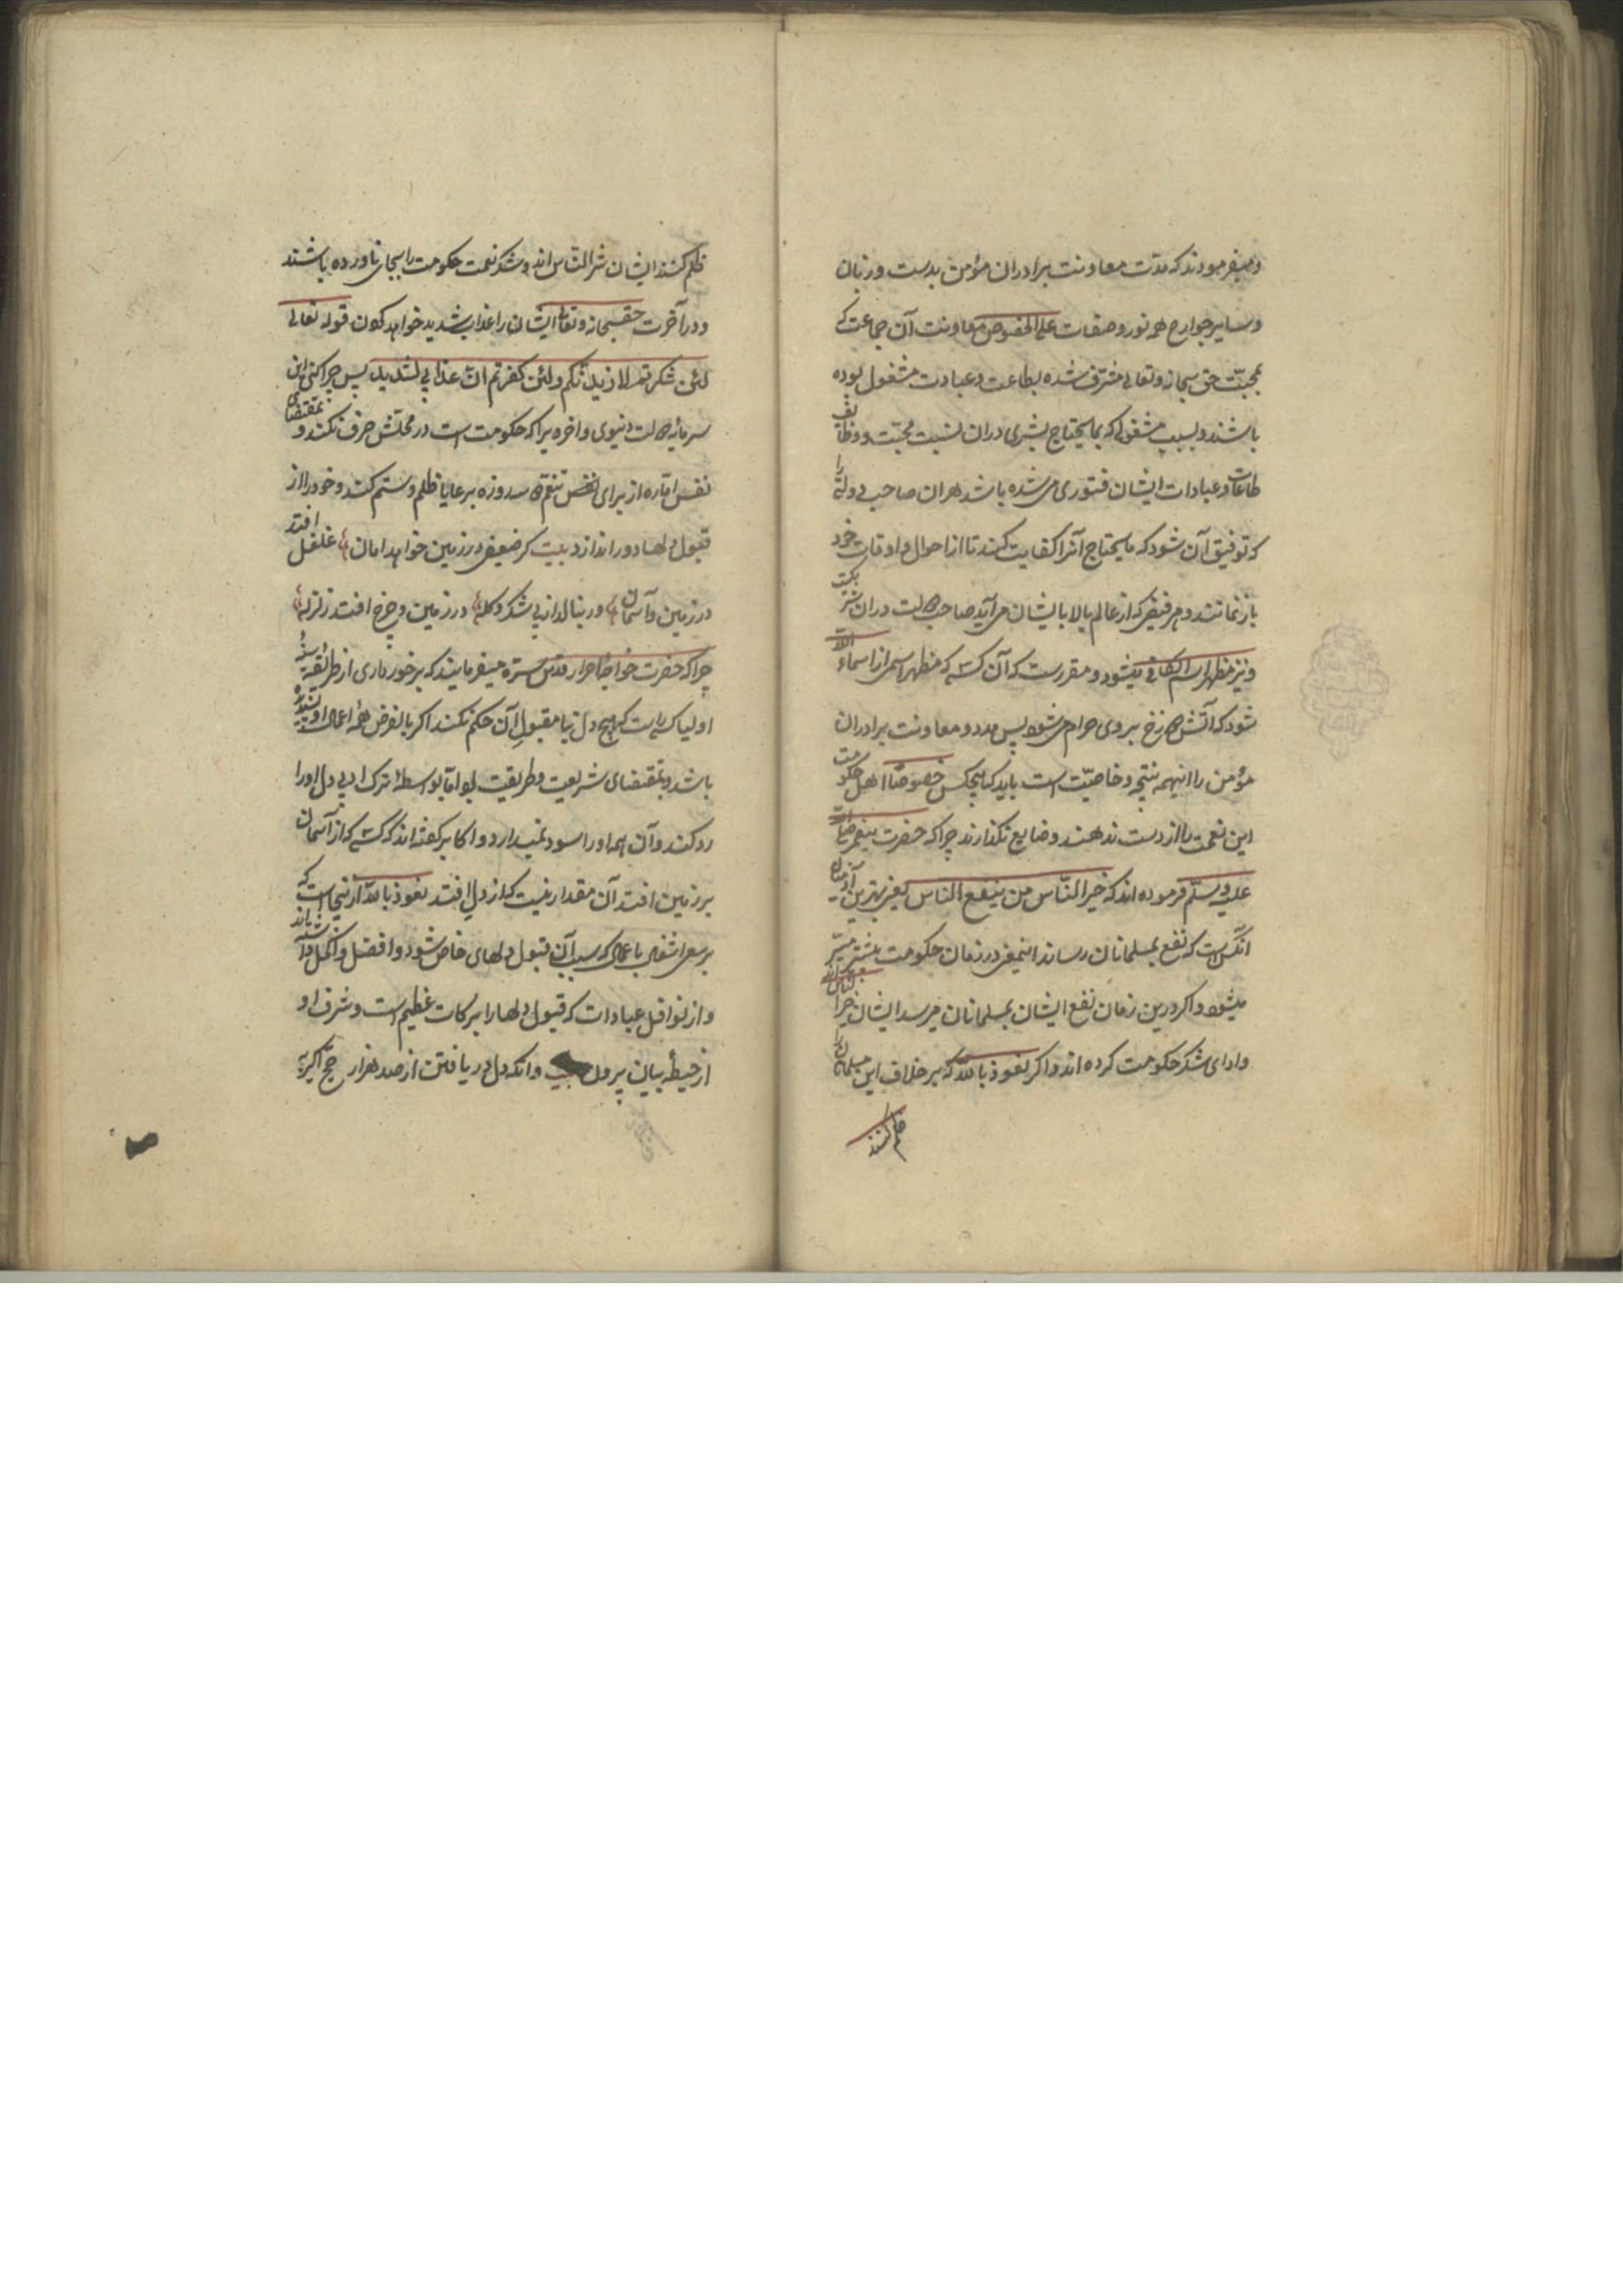 و میفرمودند که مدت معاونت برادران مؤمن بدست و زبان
و سایر جوارح همه نور و صفات علی الخصوص معاونت آن جماعت که
بمحبّت حق سبحانه و تعالی مشرّف شده بطاعت و عبادت مشغول بوده
باشند و بسبب مشغولی که بمایحتاج بشری دران نسبت محبّت و وظایف
طاعات و عبادات ایشان فتوری می شده باشد هر ان صاحب دولتی را
که توفیق آن شود که مایحتاج آنرا کفایت کنند تا از احوال و اوقات خود
باز نمانند و هر فیض که از عالم بالا بایشان می آید صاحب دولت دران شریکست
و نیز مظهر اسم الکافی میشود و مقررست که آن کسی که مظهر اسمی از اسماء الله
شود که آتش دوزخ بروی حرام می شود پس مدد و معاونت برادران
مؤمن را اینهمه نتیجه و خاصیّت است باید که هیچکس خصوصًا اهل حکومت
این نعمت را از دست ندهند و ضایع نگذارند چرا که حضرت پیغمبر صلی الله
علیه و سلّم فرموده اند که خیر النّاس من ینفع الناس یعنی بهترین آدمیان
آنکس است که نفع بمسلمانان رساند اینمعنی در زمان حکومت بیشتر میسّر
میشود و اگر درین زمان نفع ایشان بمسلمانان میرسد ایشان خیر الناس اند
و ادای شکر حکومت کرده اند و اگر نعوذ بالله که بر خلاف این مسلمانان را
ظلم کنند
ظلم کنند ایشان شرّ النّاس اند و شکر نعمت حکومت را بجای نیاورده باشند
و در آخرت حق سبحانه و تعالی ایشان را عذاب شدید خواهد کردن قوله تعالی
لئن شکرتم لازیدنّکم و لئن کفرتم انّ عذابی لشدید پس چرا کسی این
سرمایهٔ دولت دنیوی و اخروی را که حکومت است در محلّش صرف نکند و بمقتضای
نفس امّاره از برای تنعّم دو سه روزه بر عایا ظلم و ستم کند و خود را از
قبول دلها دور اندازد بیت گر ضعیفی در زمین خواهد امان غلغل افتد
در زمین و آسمان ور بنالد از پی شکر و گله در زمین و چرخ افتد زلزله
چرا که حضرت خواجه احرار قدس سره میفرمایند که برخورداری از طریقهٔ
اولیا کسی راست که هیچ دل نیا مقبول آن حکم نکند اگر بالفرض همهٔ اعمال او پسندیده
باشد و بمقتضای شریعت و طریقت بود امّا بواسطهٔ ترک ادبی دل او را
رد کند و آن همه او را سود نمیدارد و اکابر گفته اند که کسی که از آسمان
بر زمین افتد آن مقدار نیست که از دل افتد نعوذ بالله از نیجاست که
بر سعی اشغال باعمال که سبب آن قبول دلهای خاص شود و افضل و اکمل دانسته اند
و از نوافل عبادات که قبول دلها را برکات عظیم است و شرف او
از حیطهٔ بیان بیرون و آنکه دل دریافتن از صد هزار حج اکبر